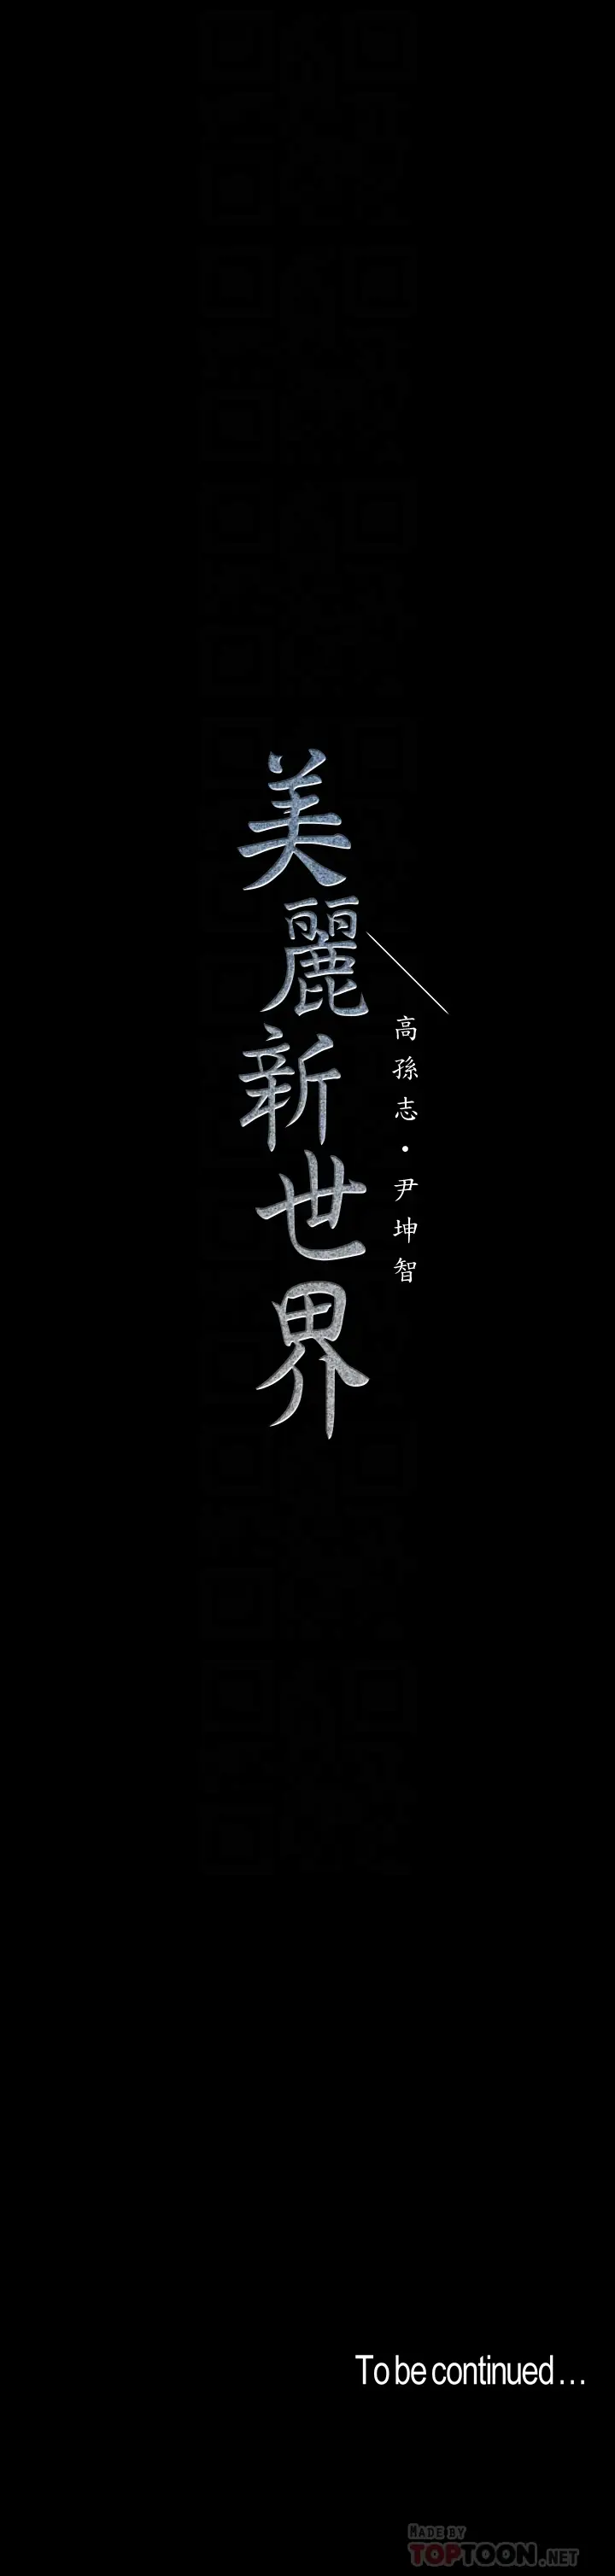 美麗新世界
高孫志・尹坤智
To be continued...
MADE BY
TOPTOON.NET